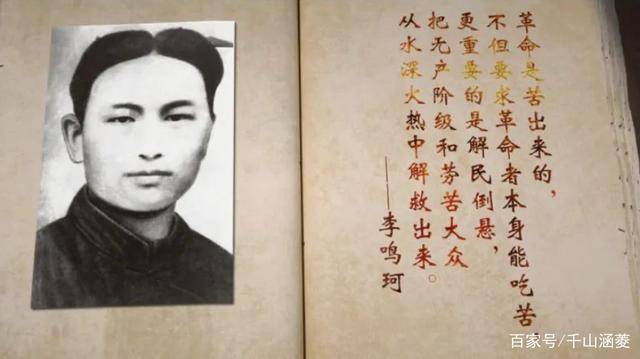 革命是苦出来的，
不但要求革命者本身能吃苦，
更重要的是解民倒悬，
把无产阶级和劳苦大众
从水深火热中解救出来。
——李鸣珂
百家号/千山涵菱